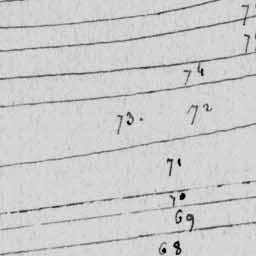 74
73. 72
71
70
69
68